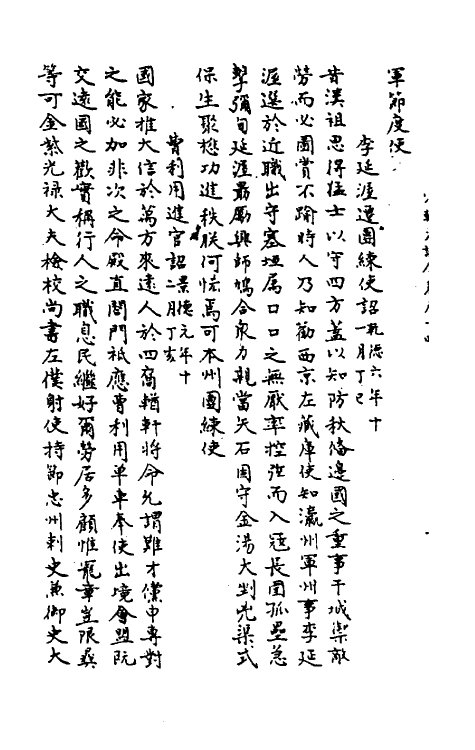 軍節度使
李延渥遷團練使詔乾德六年十一月丁巳
昔漢祖思得猛士以守四方蓋以知防秋備邊國之重事干城禦敵
勞而必圖賞不踰時人乃知勸西京左藏庫使知瀛州軍州事李延
渥選於近職出守塞垣属口口之無厭率控弦而入寇長圍孤壘急
擊彌旬延渥最勵興師鳩合衆力親當矢石固守金湯大剉兇渠式
保生聚懋功進秩朕何恡焉可本州團練使
曹利用進官詔景德元年十二月丁亥
國家推大信於萬方來遠人於四裔輶軒將命允謂雖才儻申專對
之能必加非次之命殿直閤門祗應曹利用單車奉使出境會盟阮
交遠國之歡實稱行人之職息民繼好爾勞居多顧惟寵章豈限彞
等可金紫光禄大夫檢校尚書左僕射使持節忠州刺史兼御史大